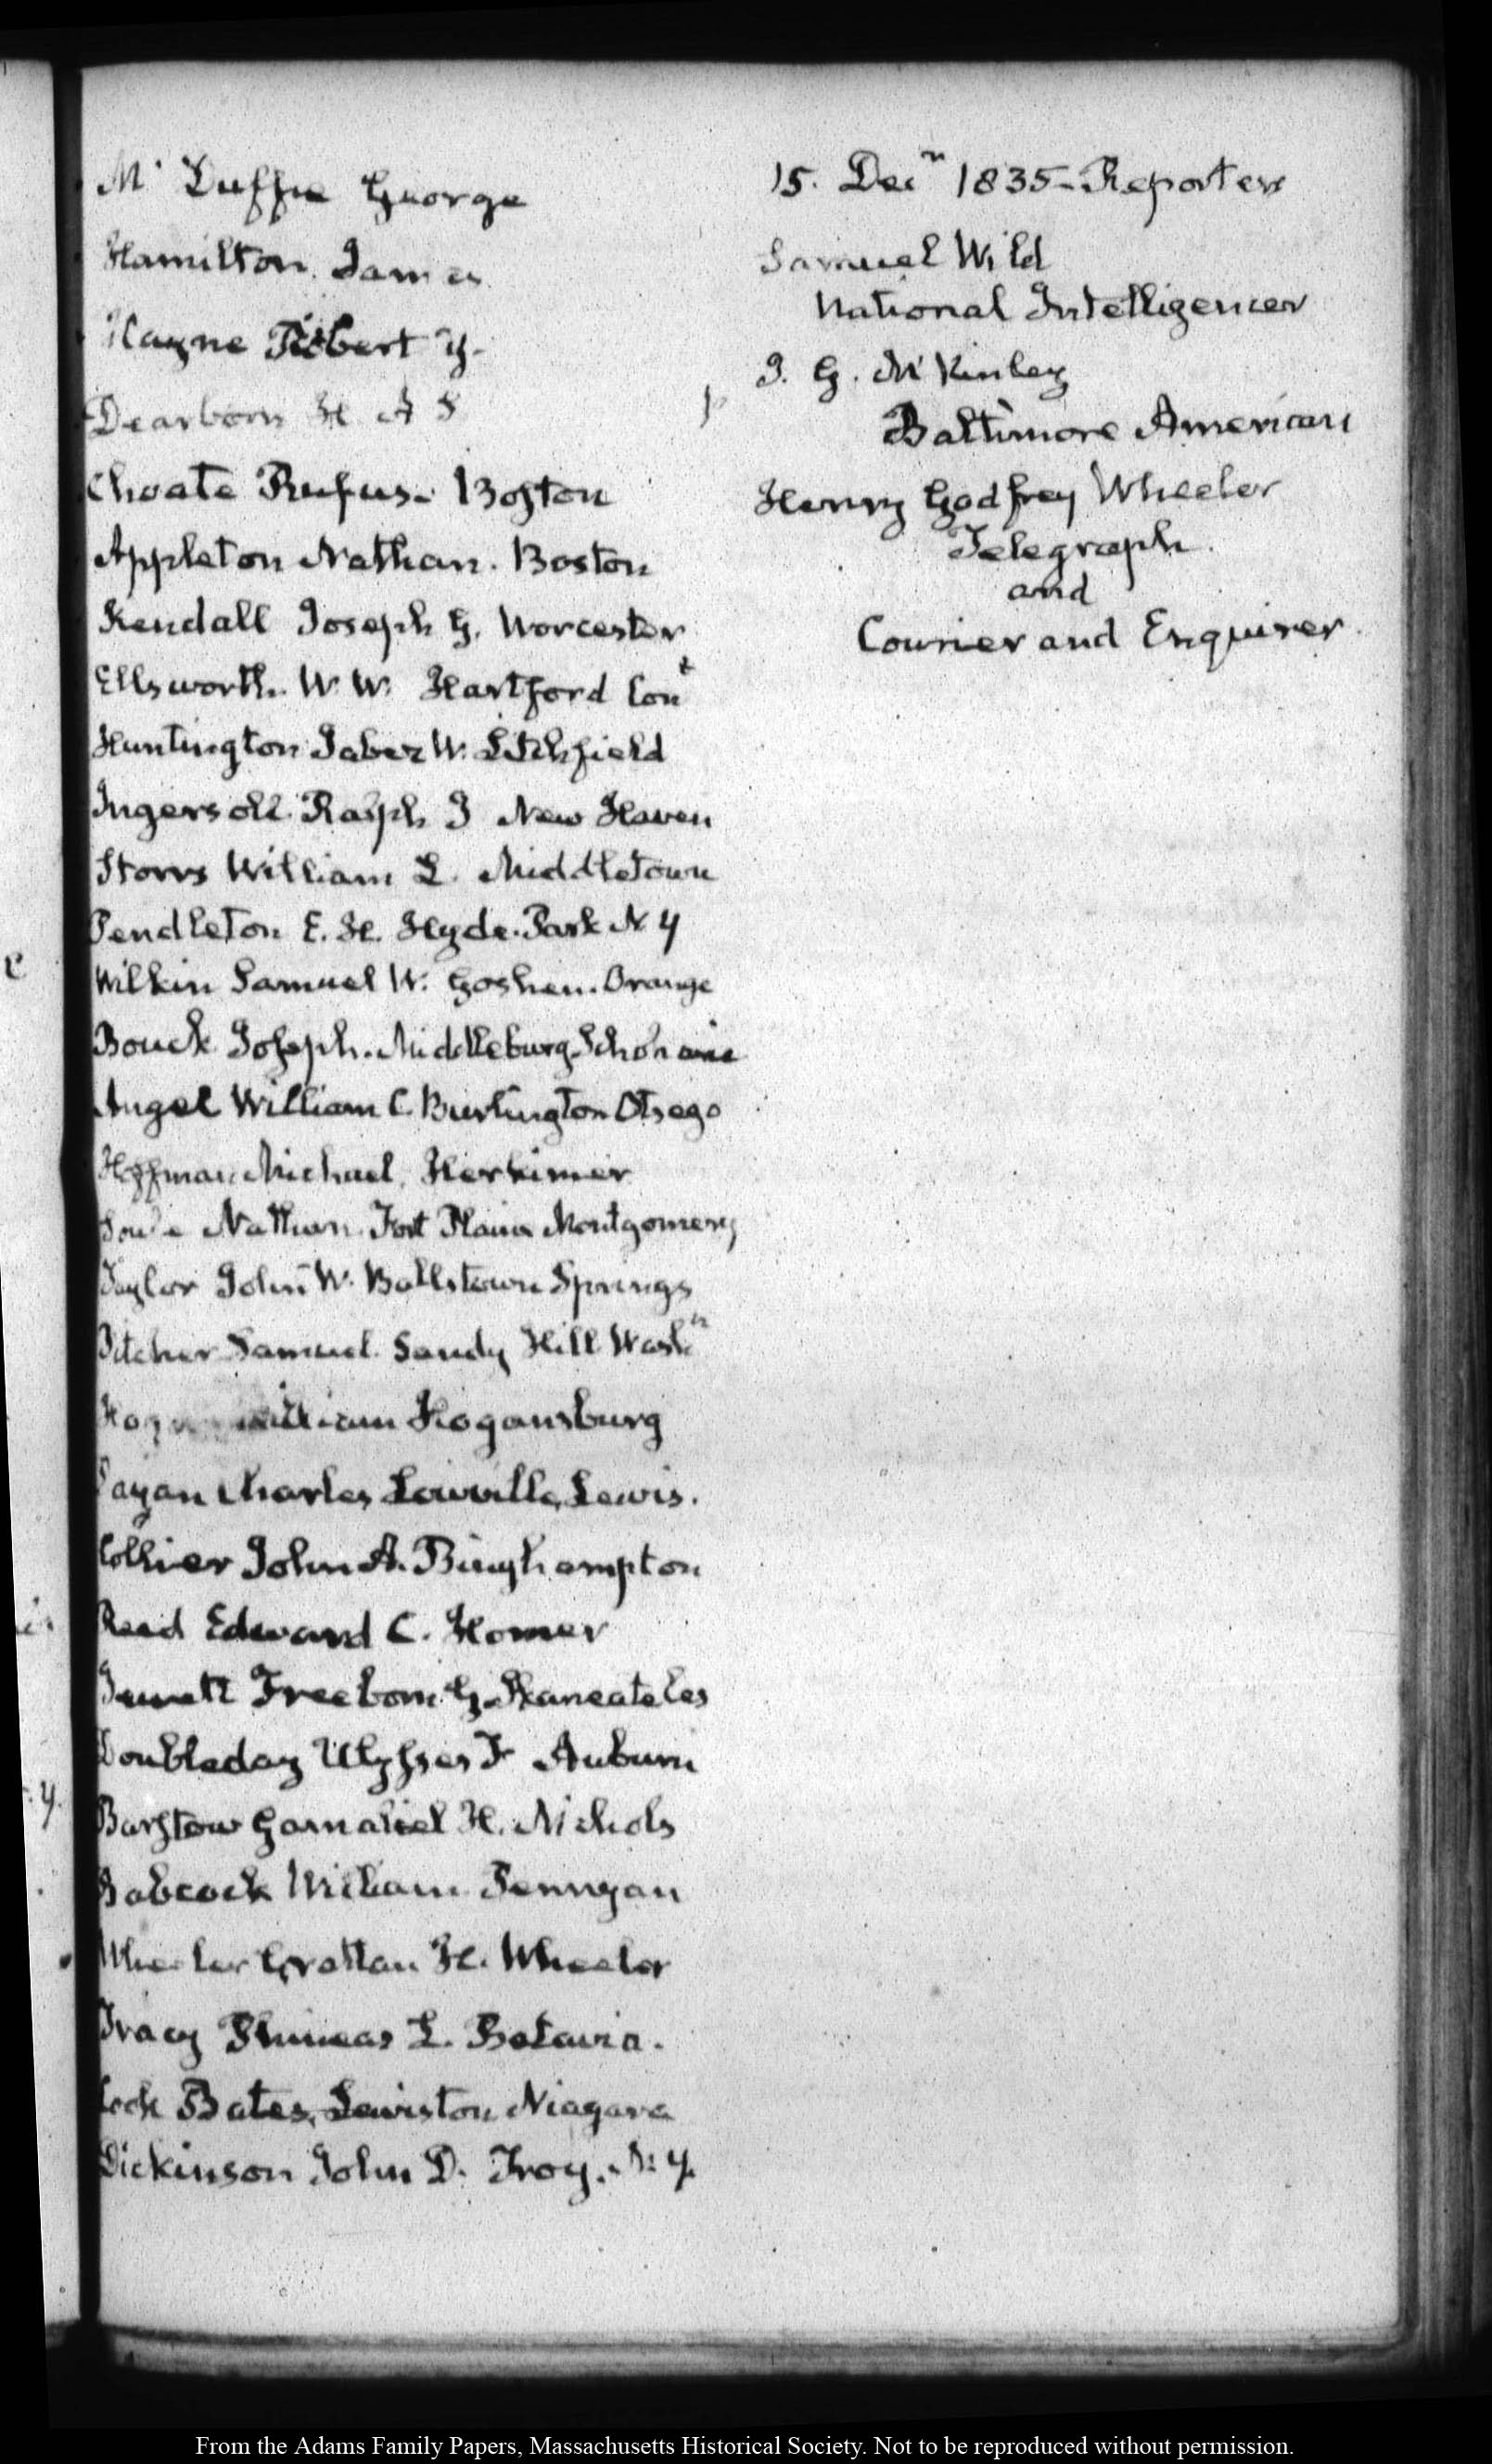 Mc Duffie George
Hamilton James
Hayne Robert Y.
Dearborn H A S
Choate Rufus. Boston
Appleton Nathan. Boston
Kendall Joseph G. Worcester
Ellsworth. W. W. Hartford Cont
Huntington Jabez W. Litchfield
Ingersoll Ralph I New Haven
Storrs William L. Middletown
Pendleton E. H. Hyde-Park N Y
Wilkin Samuel W. Goshen. Orange
Bouck Joseph. Middleburg Schoharie
Angel William C Burlington Otsego
Hoffman Michael, Herkimer
Soule Nathan. Fort Plain Montgomery
Taylor John W. Ballstown Springs
Pitcher Samuel. Sandy Hill Washn
William Hogansburg
Dayan Charles, Lowville, Lewis.
Collier John A. Binghampton
Reed Edward C. Homer
Jewett Freeborn G. Skaneateles
Doubleday Ulysses F Auburn
Barstow Gamaliel H. Nichols
Babcock William Pennyan
Wheeler Grattan H. Wheeler
Tracy Phineas L. Batavia.
Cook Bates, Lewiston Niagara
Dickinson John D. Troy. N. Y.
15. Decr 1835 - Reporters
Samuel Wild
National Intelligencer
J. G. McKinley
Baltimore American
Henry Godfrey Wheeler
Telegraph.
and
Courier and Enquirer.
From the Adams Family Papers, Massachusetts Historical Society. Not to be reproduced without permission.